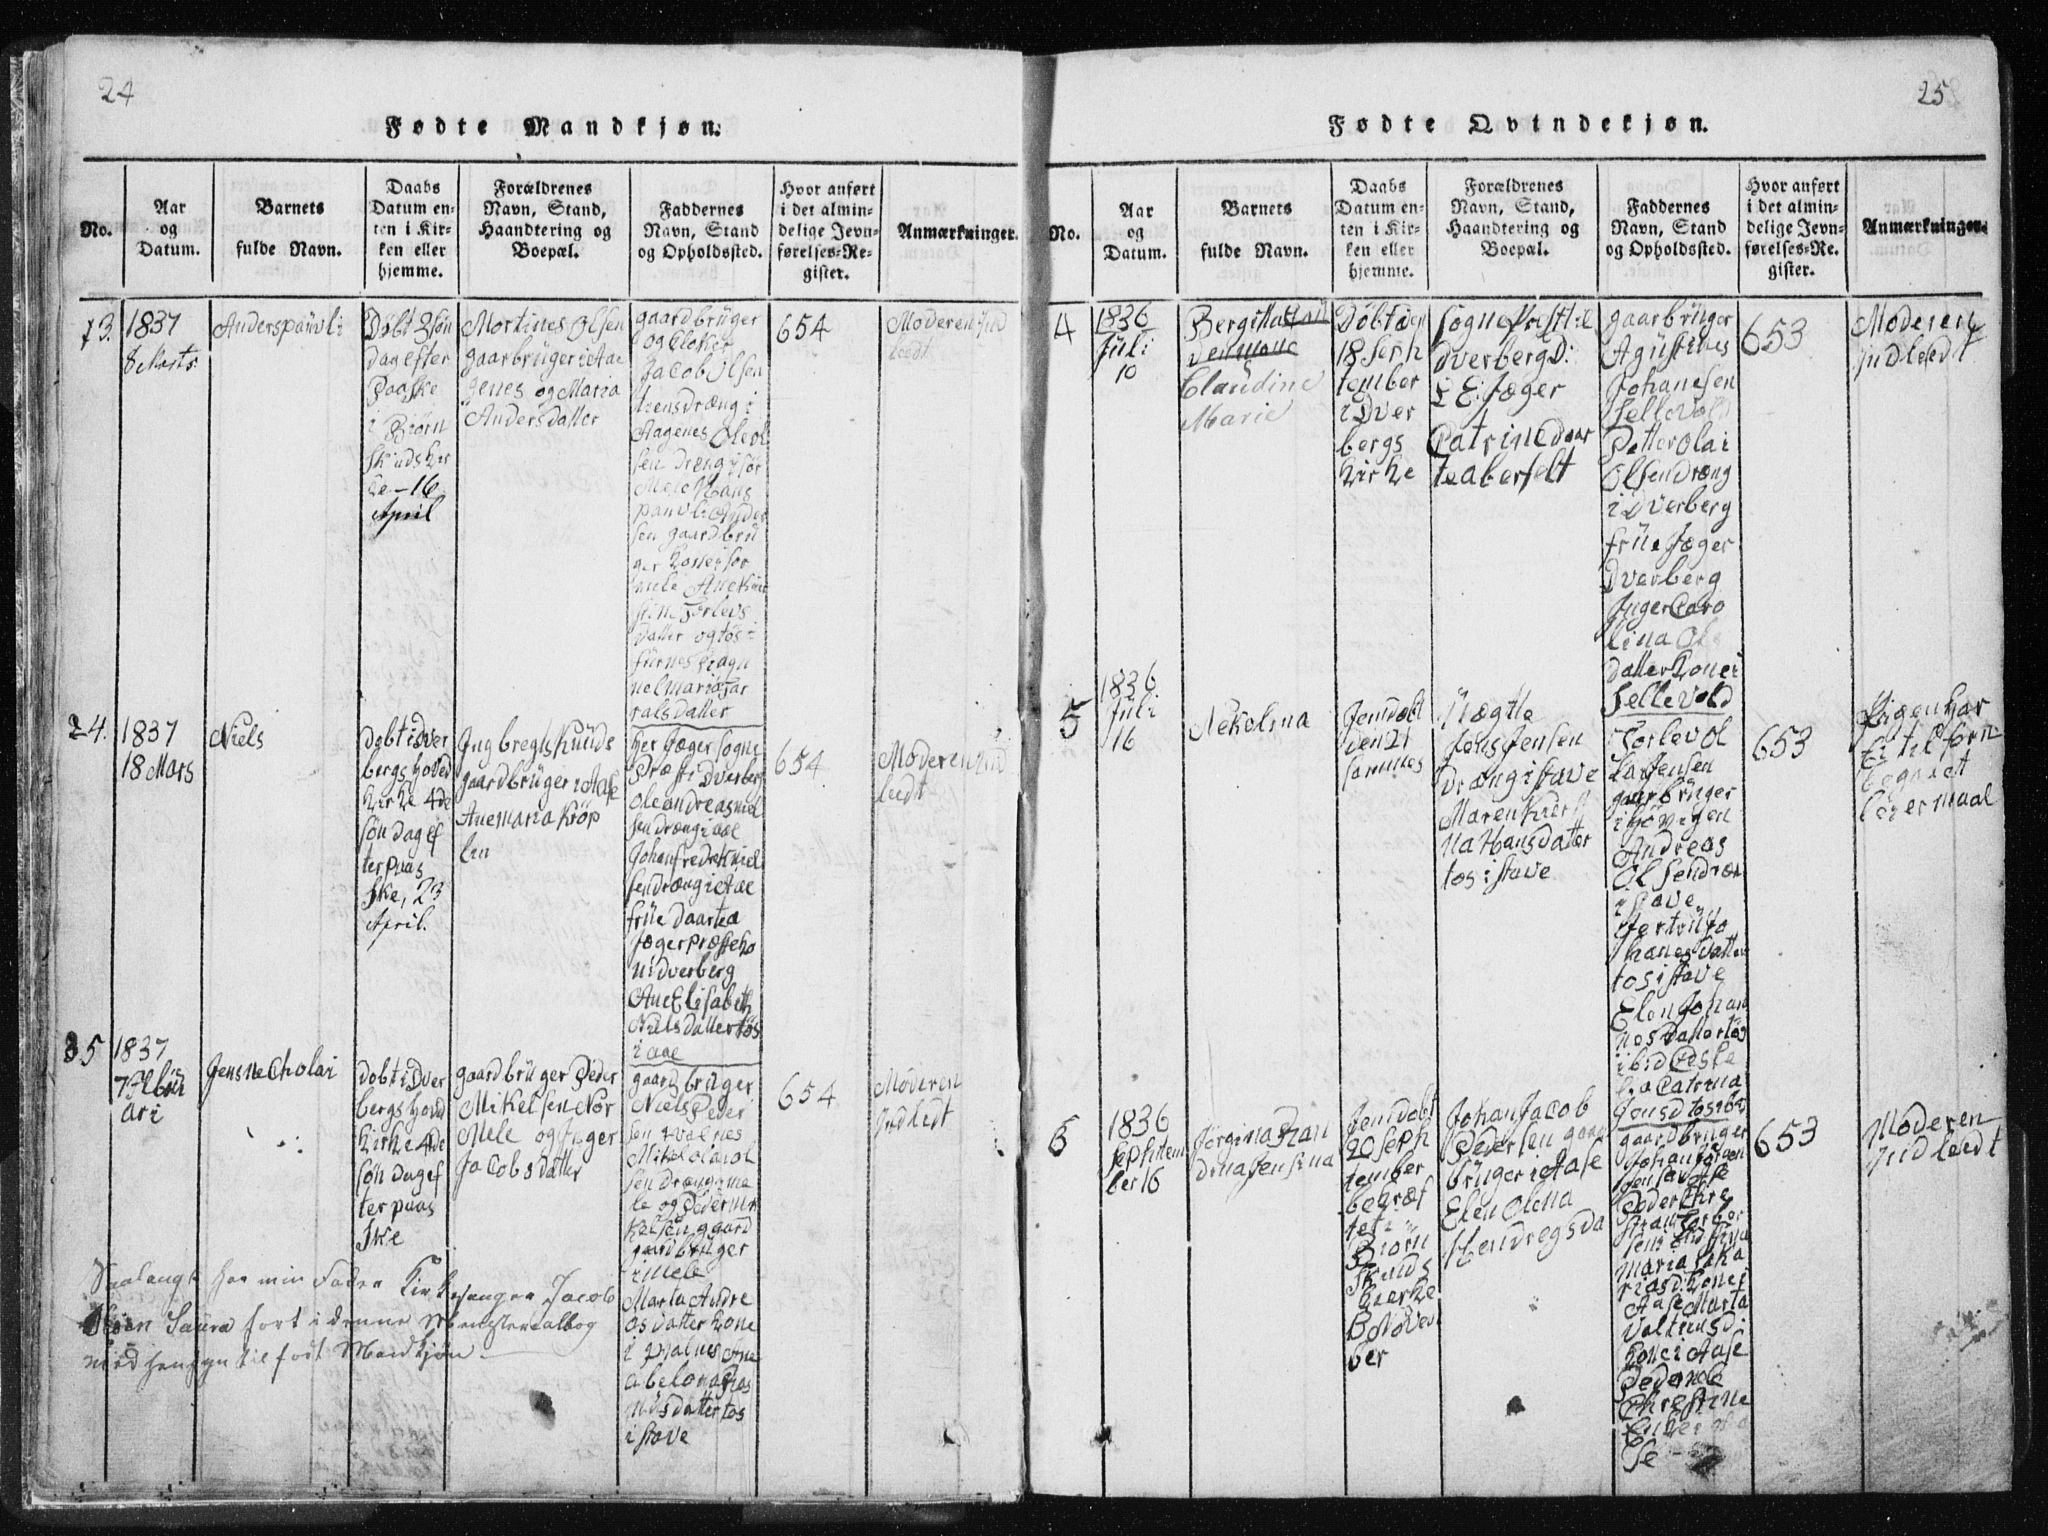 24
Fødte Mandkjøn.
No.
Aar
og
Datum.
Barnets
fulde Navn.
Daabs
Datum en-
ten i Kir-
ken eller
hjemme.
Forældrenes
Navn, Stand,
Haandtering og
Boepæl.
Faddernes
Navn, Stand
og Opholdssted.
Hvor anført
i det almin-
delige Jevn-
førelses-Re-
gister.
Anmærkninger.
1837
8 Marts
Anderspauli
Døbt 2 søn
dag efter
Paaske
i Biørn
skinds kir
ke - 16
April
Mortines Olsen
gaarbrüger i Aae
genes og Maria
Andersdatter
gaardbrüger
og Kloker
Jacob Olsen
Aagenes Ole ol
sen dreng i sør
Mele Hans
pauli Ander
sen gaardbrü
ger kone i sør
mele Anekir
stine Torlevs
datter og tøs i
nel maria Har
ralsdatter
654
Moderen ind
leedt
24.
1837
18 Mars
Niels
døbt i dver
bergs hoved
kirke 4de
søndag ef
ter paas
ke, 23
April.
Ingbregt Knuds
gaardbrüger i Aase
Anemaria Krøp
lin
her Jæger sogne
Præst i Dverberg
oleandreas niel
sen dræng i aae
Johan fredek niel
sen dræng i Aae
früe daartea
Jæger præsteko
ni dverberg
Ane Elisabeth
Nielsdatter tøs
i aae
654
Moderen ind
leedt
35
1837
7 Febrü
ari
Jens ne Cholai
døbt i Dver
bergs hoved
kirke 4de
søndag ef
ter paas
ke
gaardbrüger Peder
Mikelsen Nor
Mele og Inger
Jacobsdatter
gaardbrüger
Niels Peder
sen qvalnes
Mikel olai ol
sen dræng i me
le og Peder mi
kelsen ggaard
gaardbrüger
i mele
Marta Andre
as datter kone
i qvalnes Ane
abelona Ras
müsdatter tøs
i stave
654
Moderen
Indledt
Saalangt har min Fader Kirkesanger Jacob
Olsen Saura ført i denne Ministerialbog
med hensyn til født Mandkjøn.
25
Fødte Qvindekjøn.
No.
Aar
og
Datum.
Barnets
fulde Navn.
Daabs
Datum en-
ten i Kir-
ken eller
hjemme.
Forældrenes
Navn, Stand,
Haandtering og
Boepæl.
Faddernes
Navn, Stand
og Opholdssted.
Hvor anført
i det almin-
delige Jevn-
førelses-Re-
gister.
Anmærkninger.
4
1836
Juli
10
Claudine
Marie
Døbt den
18 Seph
tember
i Dver
bergs
kirke
Sogne Præst til
dverberg D:
E E: Jæger
Catrine daar
tea berfelt
gaarbrüger
Agustines
Johanesen
Selle vold
Petter olai
Olsen dræng
i Dverberg
früe Jæger
Dverberg
Inger Caro
lina Ols
datter kone i
Sellevold
653
Moderen
indleedt
5
1836
Juli
16
Nekolina
Jemdøbt
den 21
sammes
Uægtte
Jens Jensen
dræng i stave
Maren Kirst
na Hansdatter
tøs i stave
Torlev ol
gaarbrüger
Andreas
Olsen dræn
i stave
Jertrü Jo
hanesdatter
tøs i stave
Elen Johan
nesdatter tøs
Catrina
Jensd tøs ibid
653
Pigen har
Ei tilforn
begaaet
leiermaal
6
1836
Sephtem
ber 16
Jørgina Han
drina Jensina
Jemdøbt
20 Seph
tember
bekræf
tet i
Biørn
skinds
kierke
8 Novem
ber
Johan Jacob
Pedersen gaar
brüger i Aase
Elen Olena
Hendregsda
gaardbrüger
Maria saka
rias d: kone i
Aase Marta
Valtinsd:
kone i Aase
Peder
Christine
se
653
Moderen
indleedt